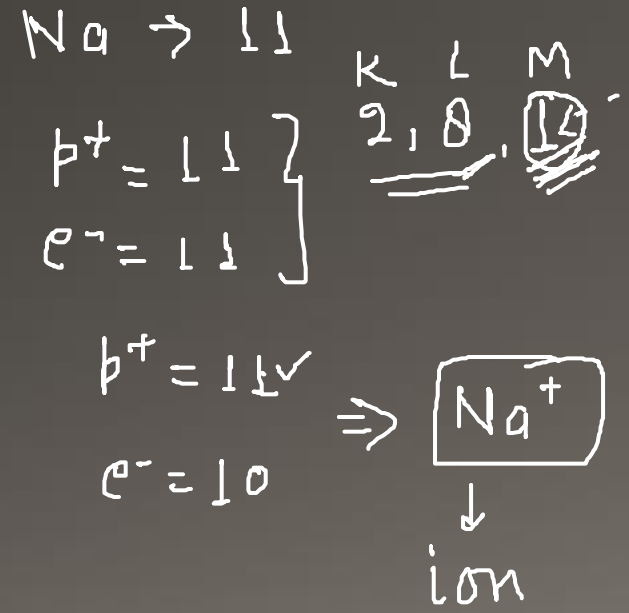 Na → 11
K L M
2, 8, 1
p+ = 11
e- = 11
p+ = 11 ✓
e- = 10
⇒ Na+
↓
ion